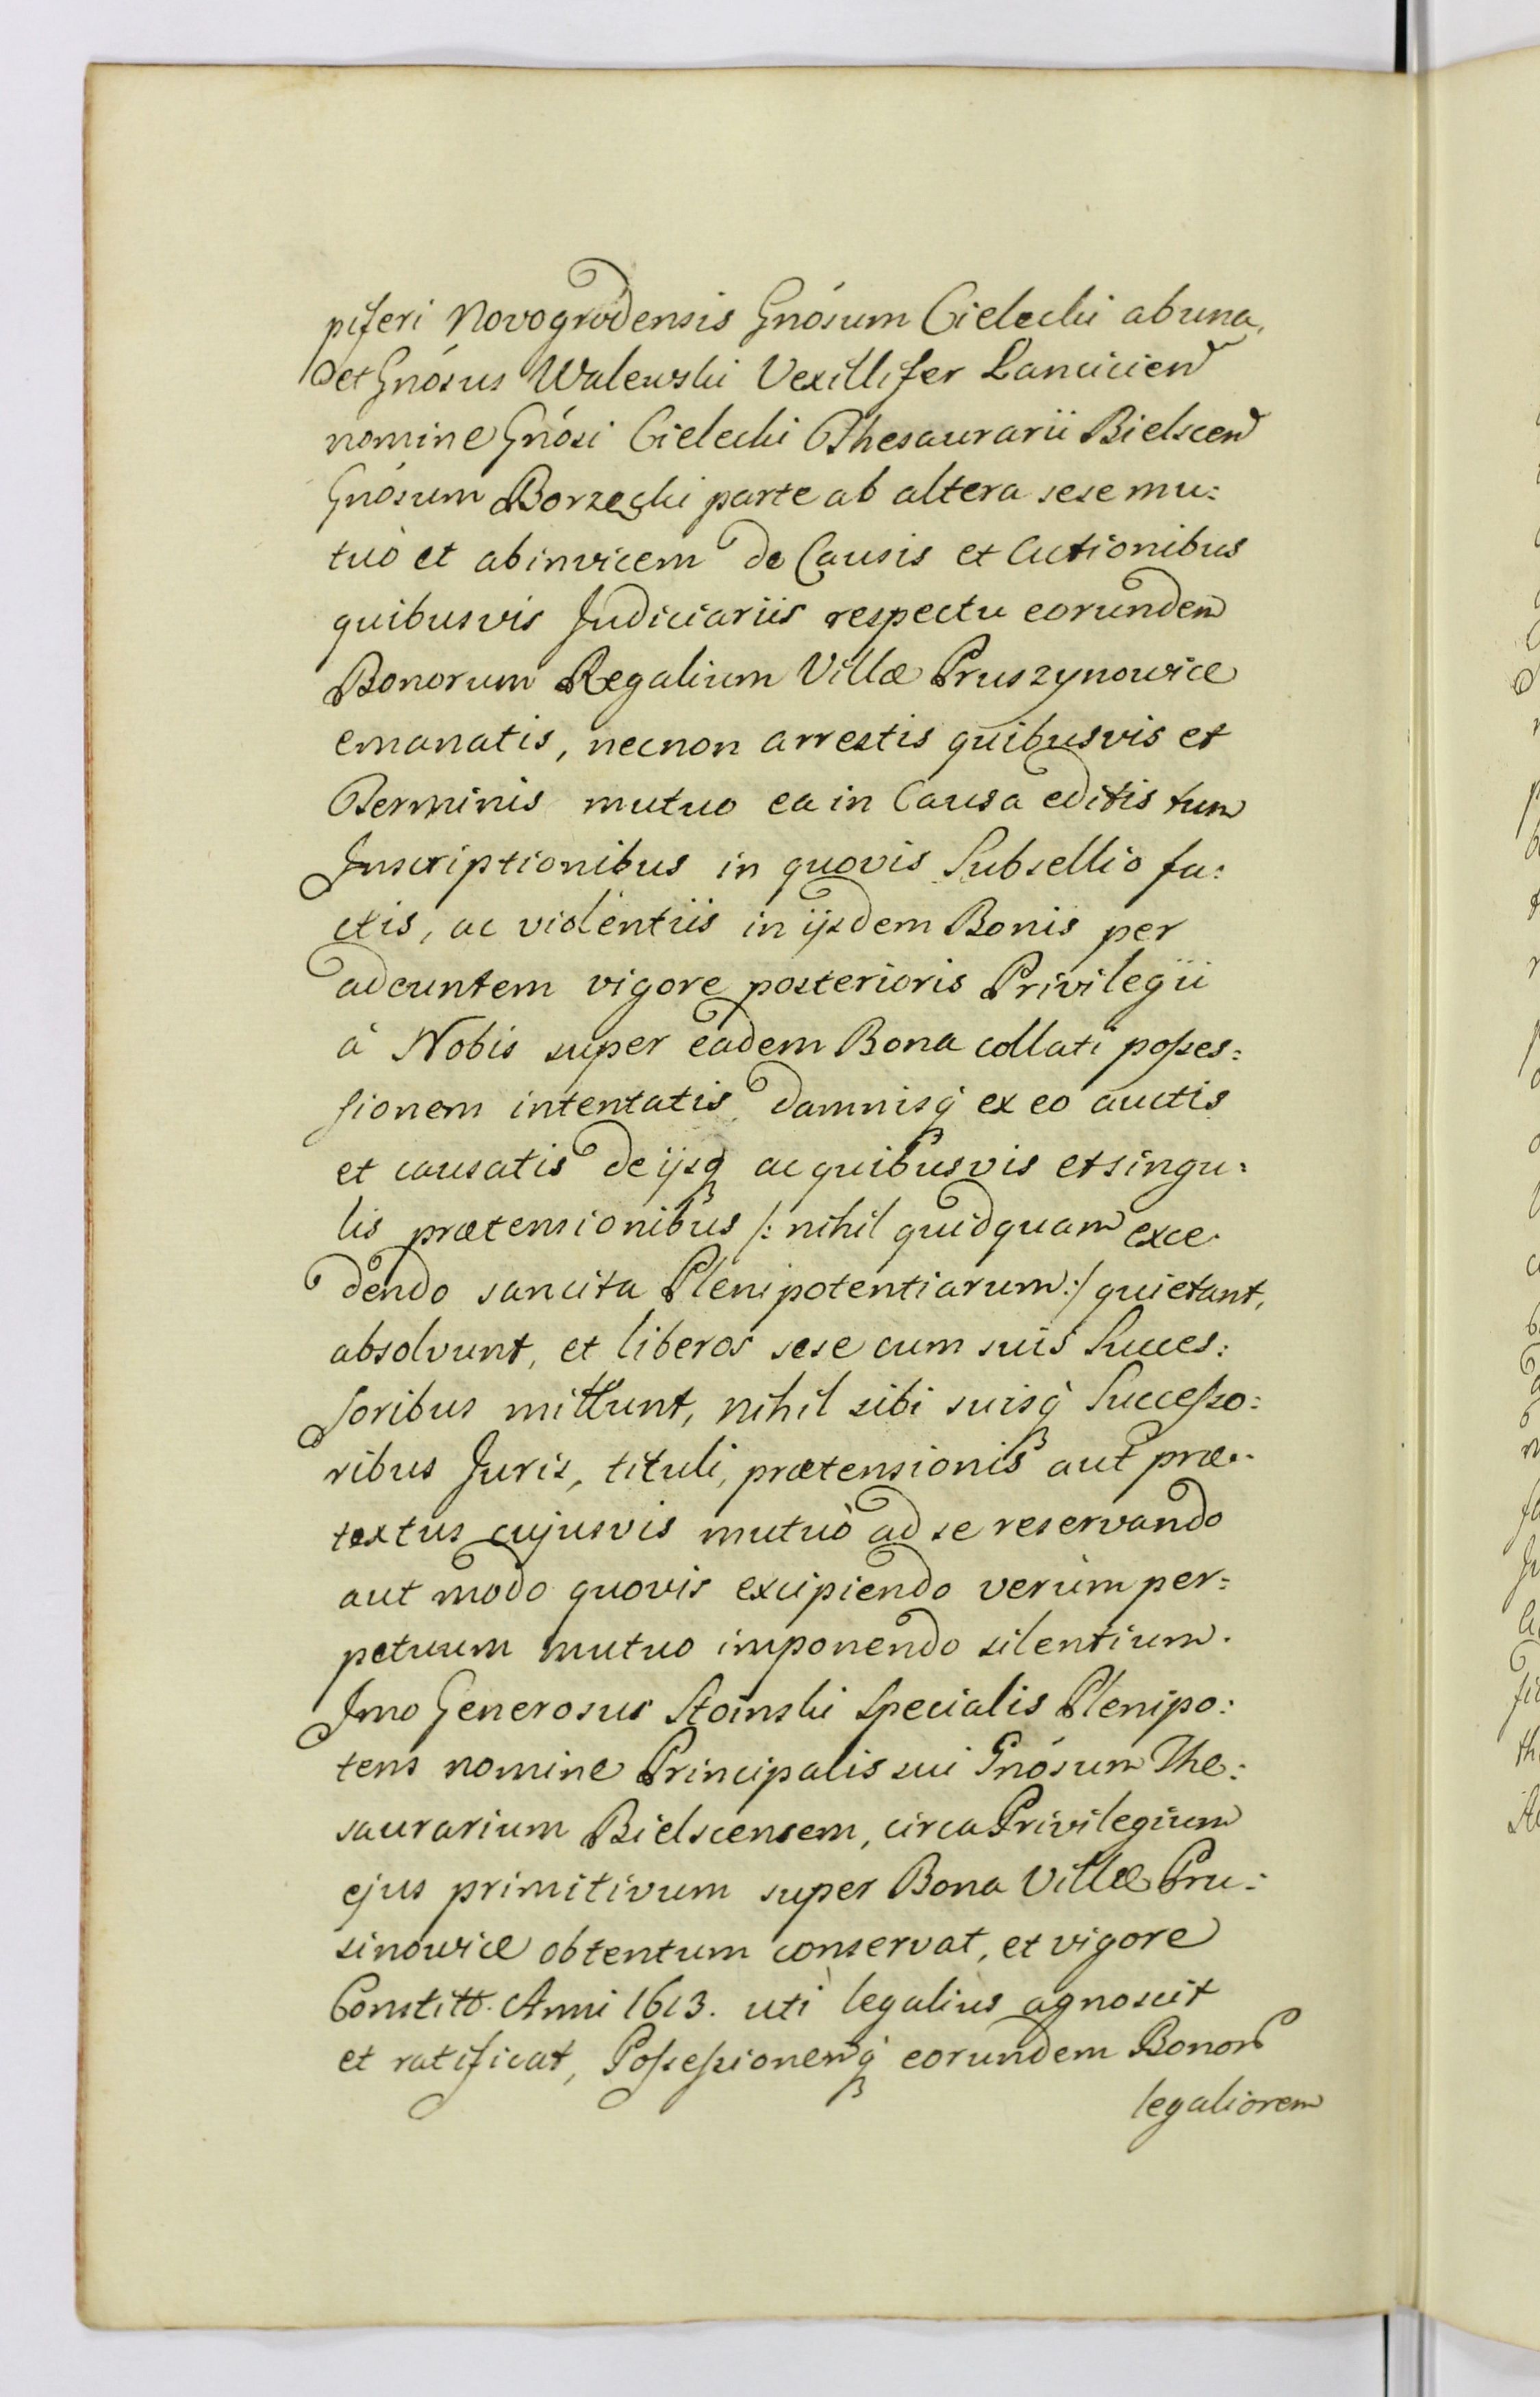 piferi Novogrodensis Gnosum Cielecki ab una,
et Gnosus Walewski Vexillifer Lancicien
nomine Gnosi Cielecki Thesaurarii Bielscen
Gnosum Borzecki parte ab altera sese mu:
tuò et ab invicem de Causis et Actionibus
quibusvis Judiciariis respectu eorundem
Bonorum Regalium Villæ Pruszynowice
emanatis, necnon arrestis quibusvis et
Terminis mutuo ea in Causa editis tum
Inscriptionibus in quovis Subsellio fa:
ctis, ac violentiis in ijsdem Bonis per
adeuntem vigore posterioris Privilegii
à Nobis super eadem Bona collati posses:
sionem intentatis damnisq́ ex eo auctis
et causatis de ijsq ac quibusvis et singu:
lis prætensionibus /: nihil quidquam exce.
dendo sancita Plenipotentiarum :/ quietant,
absolvunt, et liberos sese cum suis Succes:
soribus mittunt, nihil sibi suisq́ Successo:
ribus Juris, tituli, prætensionis aut præ:
textus cujusvis mutuò ad se reservando
aut modo quovis excipiendo verùm per:
petuum mutuo imponendo silentium.
Imo Generosus Stoinski Specialis Plenipo:
tens nomine Principalis sui Gnosum The:
saurarium Bielscensem, circa Privilegium
ejus primitivum super Bona Villæ Pru:
sinowice obtentum conservat, et vigore
Constitt. Anni 1613. uti legalius agnoscit
et ratificat, Possessionemq́ eorundem Bonor
legaliorem